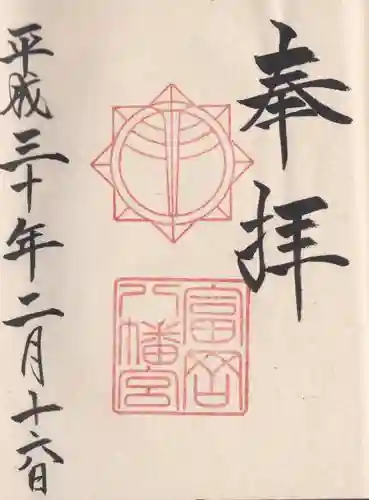 奉拝
富岡
八幡宮
平成三十年二月十六日